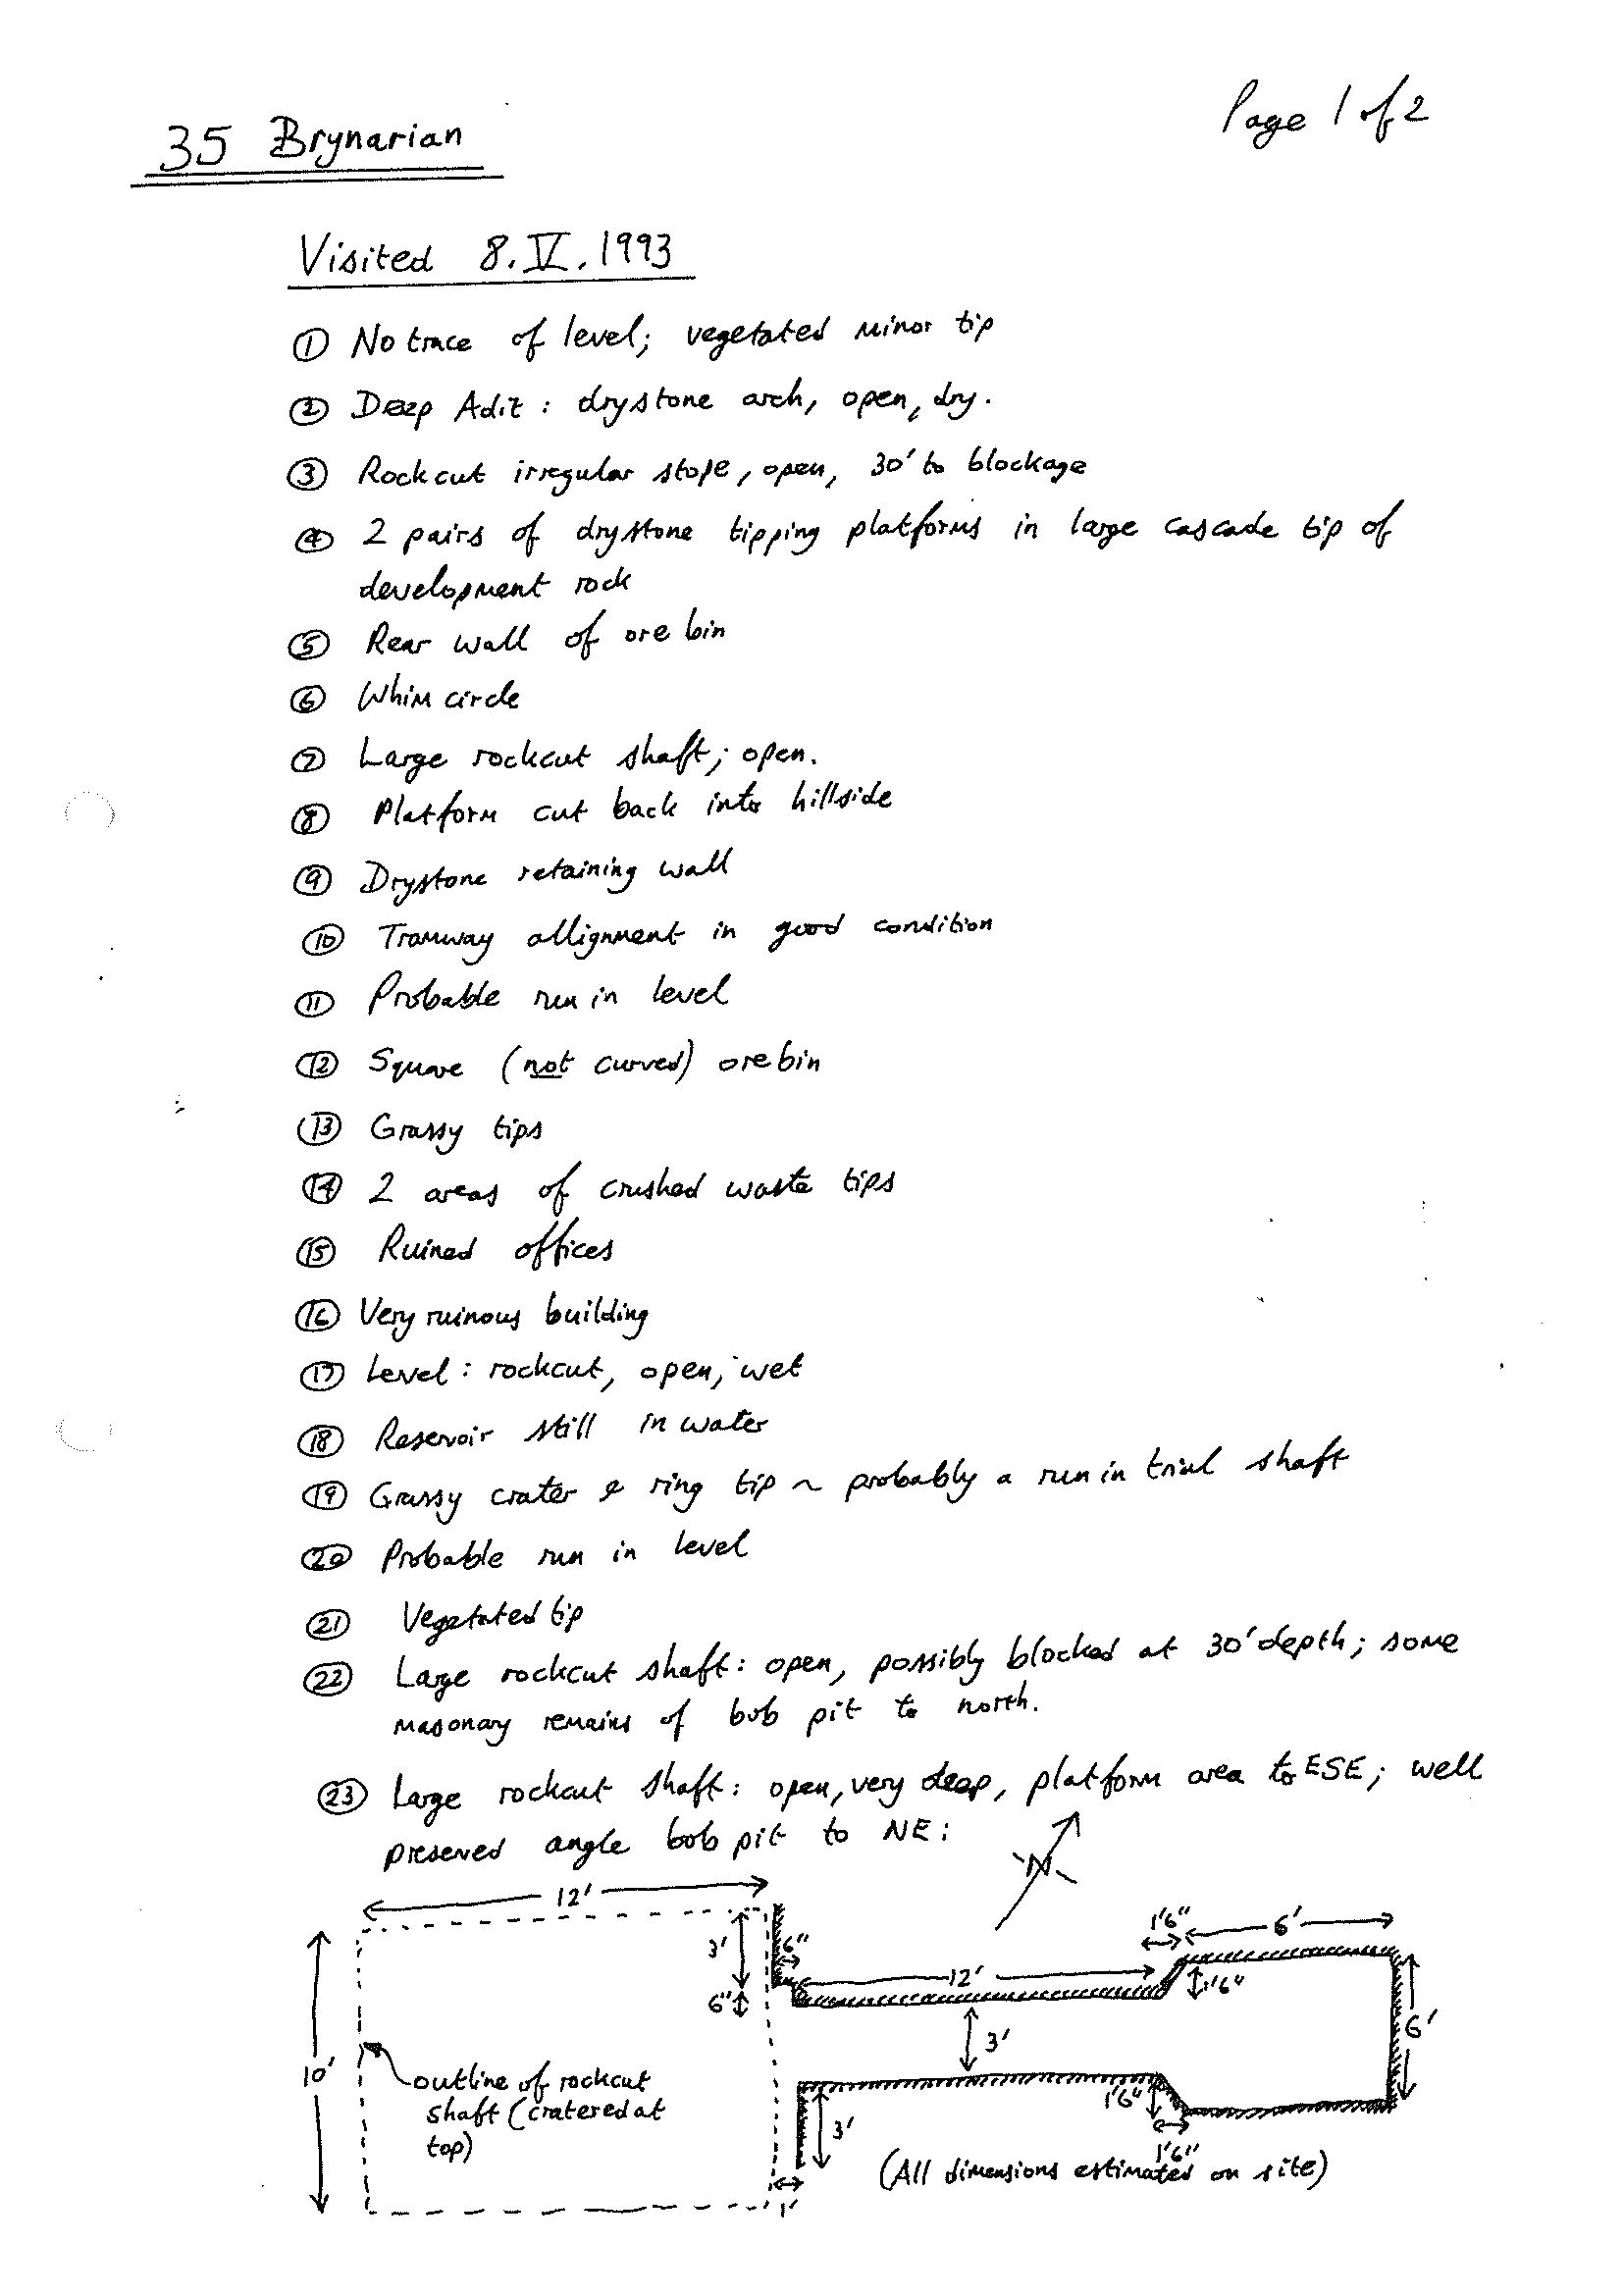 Page 1 of 2
35 Brynarian
Visited 8.IV.1993
① No trace of level; vegetated minor tip
② Deep Adit: drystone arch, open, dry.
③ Rockcut irregular stope, open, 30' to blockage
④ 2 pairs of drystone tipping platforms in large cascade tip of
development rock
⑤ Rear wall of ore bin
⑥ Whim circle
⑦ Large rockcut shaft; open.
⑧ Platform cut back into hillside
⑨ Drystone retaining wall
⑩ Tramway allignment in good condition
⑪ Probable run in level
⑫ Square (not curved) orebin
⑬ Grassy tips
⑭ 2 areas of crushed waste tips
⑮ Ruined offices
⑯ Very ruinous building
⑰ Level: rockcut, open, wet
⑱ Reservoir still in water
⑲ Grassy crater & ring tip ~ probably a run in trial shaft
⑳ Probable run in level
㉑ Vegetated tip
㉒ Large rockcut shaft: open, possibly blocked at 30' depth; some
masonary remains of bob pit to north.
㉓ Large rockcut shaft: open, very deep, platform area to ESE; well
preserved angle bob pit to NE:
N
12'
3'
6"
6"
12'
1'6"
6'
1'6"
3'
6'
10'
outline of rockcut
shaft (cratered at
top)
3'
1'6"
1'6"
(All dimensions estimated on site)
1'